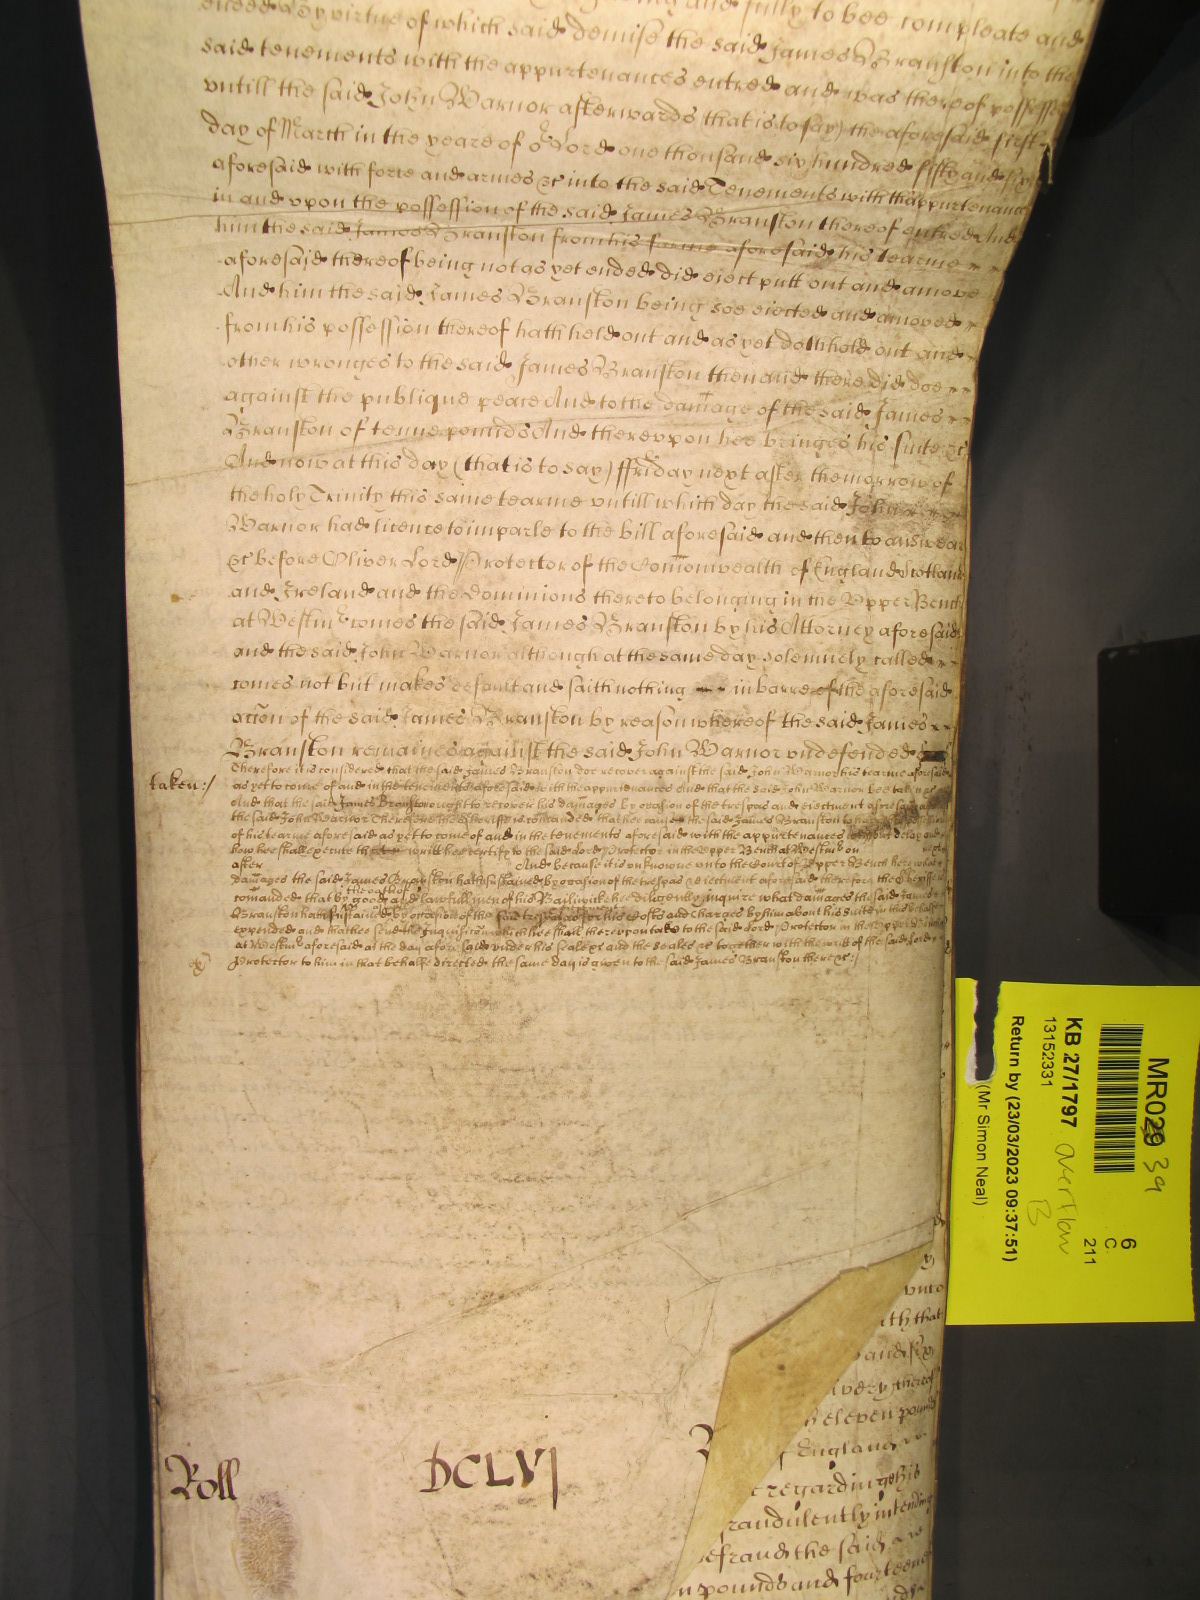 and fully to bee compleate and
ended By virtue of which said demise the said James Branston into the
said tenements with the appurtenances entred and was thereof possessed
untill the said John Warnor afterwards (that is to say) the aforesaid first
day of March in the yeare of or Lord one thousand six hundred fifty and six
aforesaid with force and armes &c into the said Tenements with thappurtenances
in and vpon the possession of the said James Branston thereof entred And
him the said James Branston from his farme aforesaid his tearme
aforesaid thereof being not as yet ended did eiect putt out and amove
And him the said James Branston being soe eiected and amoved
from his possession thereof hath held out and as yet doth hold out and
other wronges to the said James Branston then and there did doe
against the publique peace And to the damage of the said James
Branston of tenne pounds And therevpon hee bringes his suite &c
And now at this day (that is to say) ffriday next after the morrow of
the holy Trinity this same tearme vntill which day the said John
Warnor had licence to imparle to the bill aforesaid and then to answear
&c before Oliver Lord Protector of the Comonwealth of England Scotland
and Ireland and the dominions thereto belonging in the Vpper Bench
at Westmr comes the said James Branston by his Attorney aforesaid
and the said John Warnor although at the same day solemnely called
comes not but makes default and saith nothing in barre of the aforesaid
acon of the said James Branston by reason whereof the said James
Branston remaines against the said John Warnor vndefended
taken:/
Therefore it is considered that the said James Branston doe recover against the said John Warnor his tearme aforesaid
as yet to come of and in the tenements aforesaid with the appurtenances And that the said John Warnor bee taken &c
And that the said James Branston ought to recover his damages by ocasion of the trespas and eiectment aforesaid
the said John Warnor Therefore the sheriffe is comanded that hee cause the said James Branston to have possession
of his tearme aforesaid as yet to come of and in the tenements aforesaid with the appurtenances without delay and
how hee shall execute the writt hee certify to the said Lord Protector in the Vpper Bench at Westmr on next
after And because it is unknowne vnto the Court of Vpper Bench here what
damages the said James Branston hath sustained by ocasion of the trespas & eiectment aforesaid therefore the sheriffe is
the oath of
comanded that by good and lawfull men of his Bailiwicke hee diligently inquire what damages the said James
Branston hath sustained by ocasion of the said trespas as for his Costs and Charges by him about his suite in this behalfe
expended and that hee send the Inquisicon which hee shall therevpon take to the said Lord Protector in the Vpper Bench
at Westmr aforesaid at the day aforesaid vnder his seale &c and the seales &c together with the writt of the said Lord
Protector to him in that behalfe directed the same day is given to the said James Branston there &c:/
Roll DCLVI
vnto
that
and six
very thereof
eleven pounds
England
regarding his
fraudulently intending
defraud the said
pounds and fourteene
MR029 39
6
C.
211
KB 27/1797 overflow
B
13152331
Return by (23/03/2023 09:37:51)
(Mr Simon Neal)